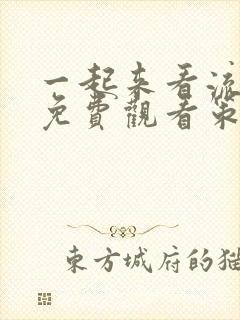 一起来看流
免費觀看策
東方城府的猫